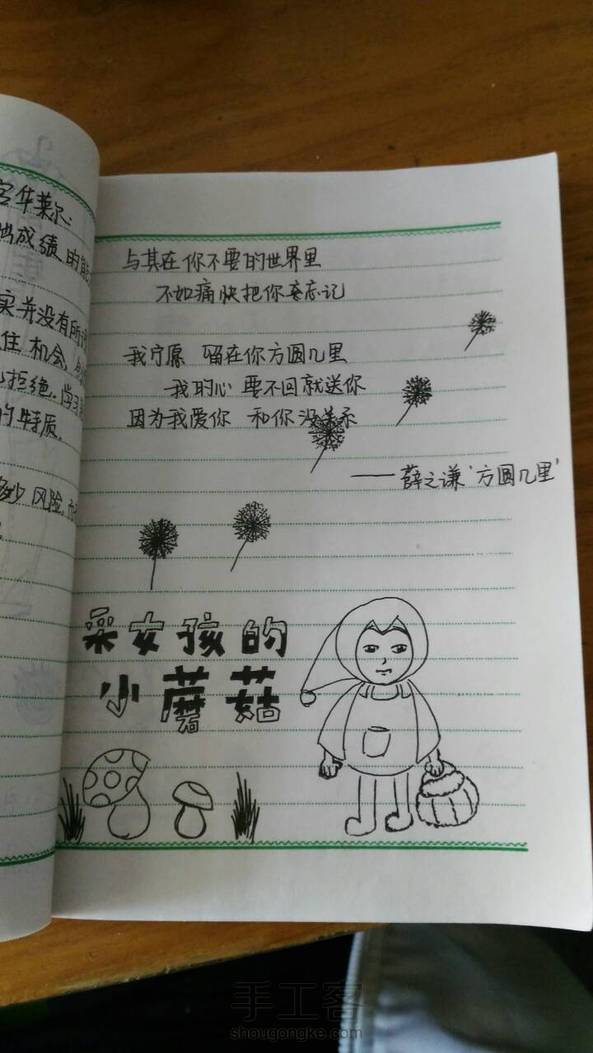 与其在你不要的世界里
不如痛快把你全忘记
我宁愿 留在你方圆几里
我的心 要不回就送你
因为我爱你 和你没关系
——薛之谦'方圆几里'
采女孩的
小蘑菇
华莱尔:
成绩的能
实并没有所
住机会,
拒绝.学习
的特质.
风险,
手工客
shougongke.com